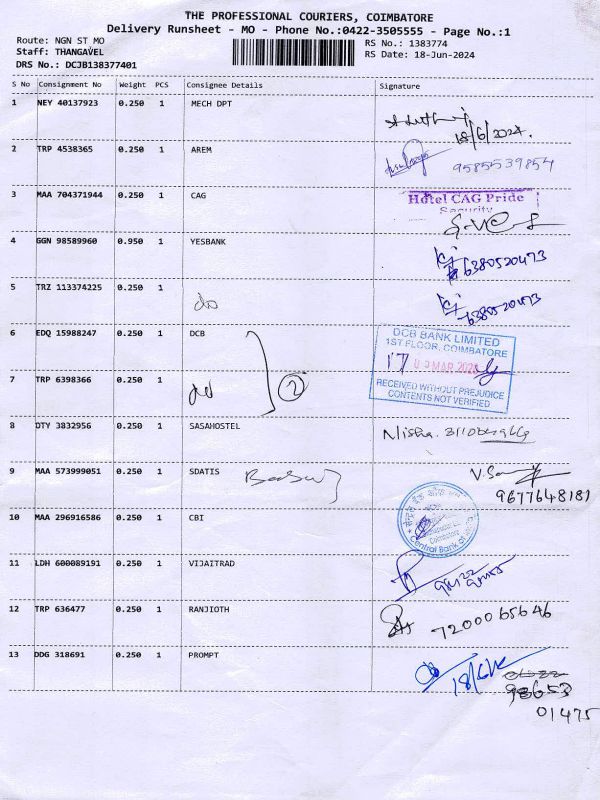 THE PROFESSIONAL COURIERS, COIMBATORE
Delivery Runsheet - MO - Phone No.:0422-3505555 - Page No.:1
Route: NGN ST MO RS No.: 1383774
Staff: THANGAVEL RS Date: 18-Jun-2024
DRS No.: DCJB138377401
S No Consignment No Weight PCS Consignee Details Signature
1 NEY 40137923 0.250 1 MECH DPT
18/6/2024.
2 TRP 4538365 0.250 1 AREM
9585539854
3 MAA 704371944 0.250 1 CAG Hotel CAG Pride
Security
4 GGN 98589960 0.950 1 YESBANK
6380520473
5 TRZ 113374225 0.250 1 do
6380520473
6 EDQ 15988247 0.250 1 DCB DCB BANK LIMITED
1ST FLOOR, COIMBATORE
2
7 TRP 6398366 0.250 1 do RECEIVED WITHOUT PREJUDICE
CONTENTS NOT VERIFIED
8 DTY 3832956 0.250 1 SASAHOSTEL Nisha.
9 MAA 573999051 0.250 1 SDATIS
9677648181
10 MAA 296916586 0.250 1 CBI
Central Bank of
Coimbatore
11 LDH 600089191 0.250 1 VIJAITRAD
12 TRP 636477 0.250 1 RANJIOTH
7200065646
13 DDG 318691 0.250 1 PROMPT
18/6/
98653
01475